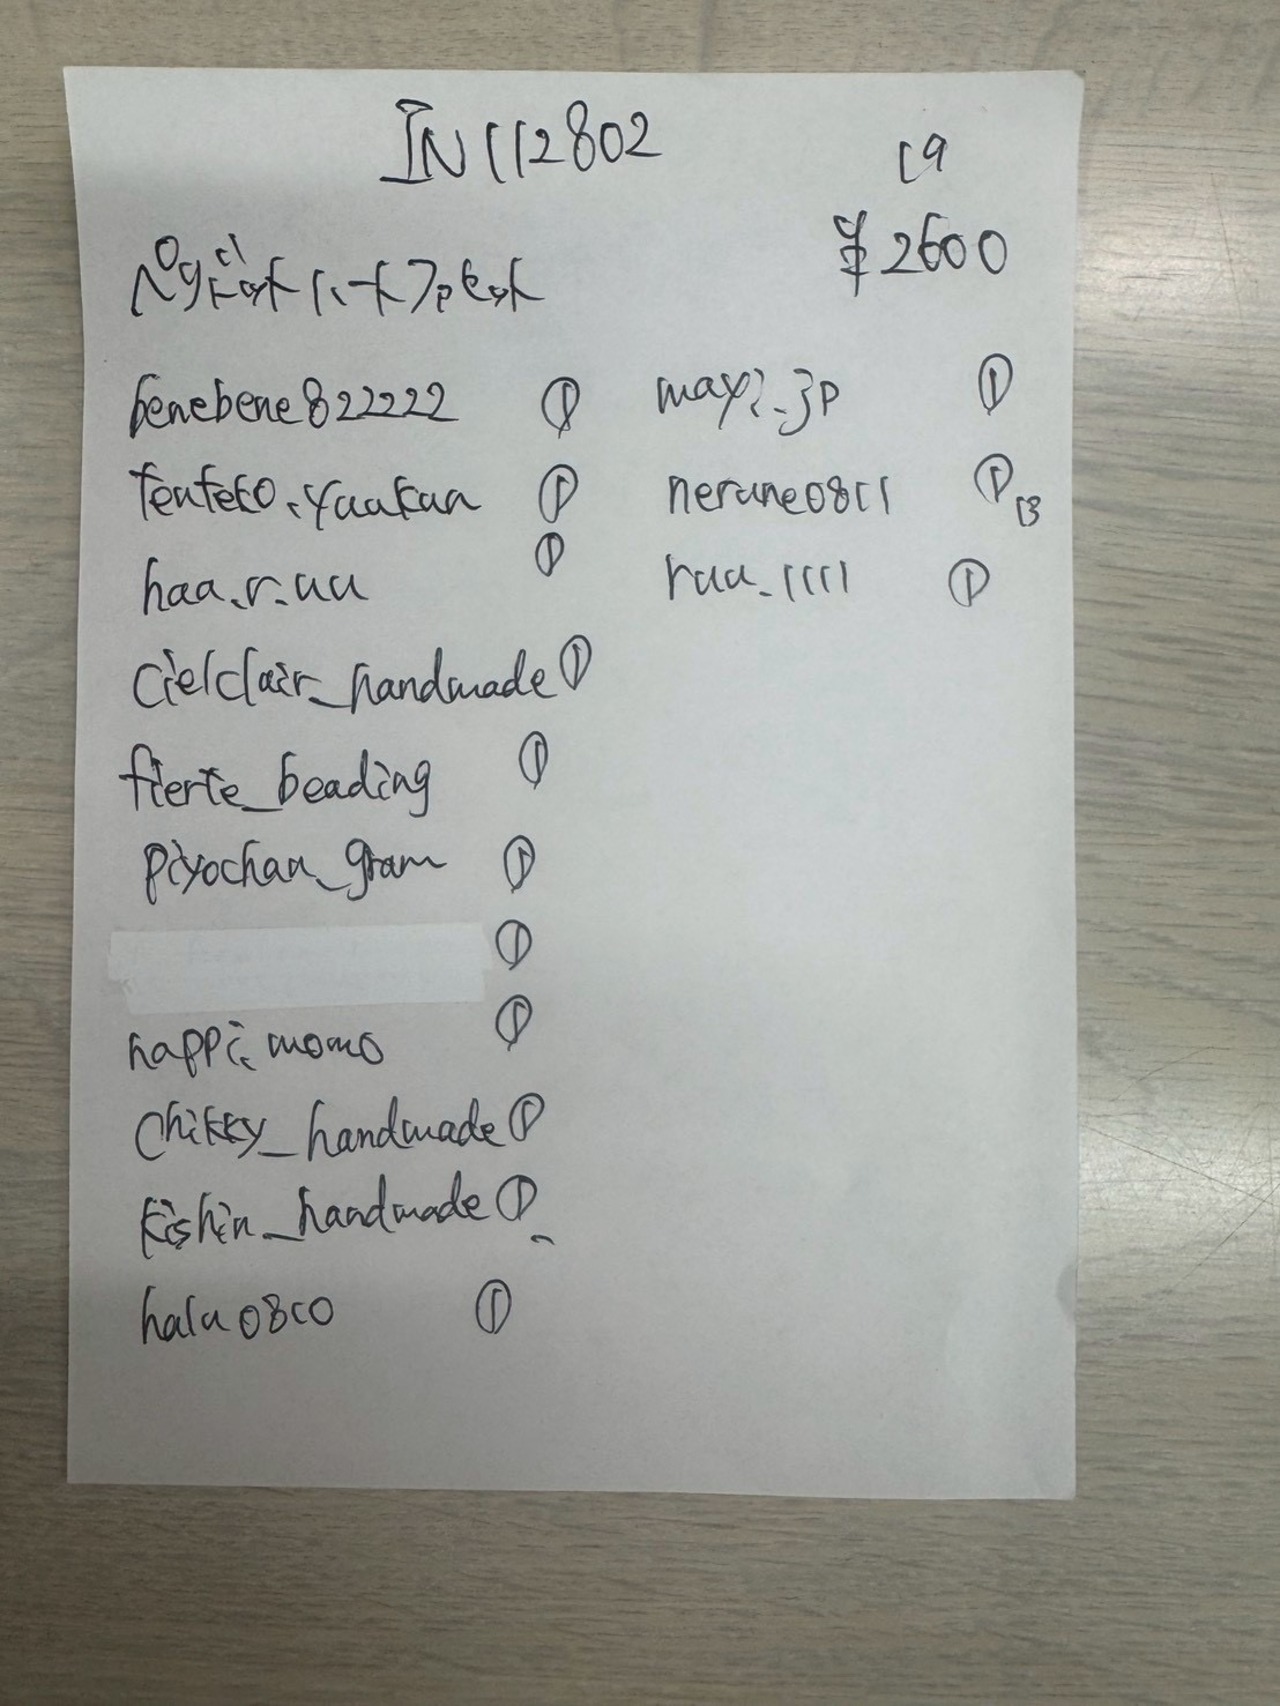 IN112802
19
¥2600
benebene822222 ①
tenteko.yaakaa ①
haa.r.uu ①
cielclair_handmade ①
fierte_beading ①
piyochan_gram ①
①
happi.momo ①
chikky_handmade ①
kishin_handmade ①
halu0810 ①
①
nerune0811 ① 13
ruu_1111 ①